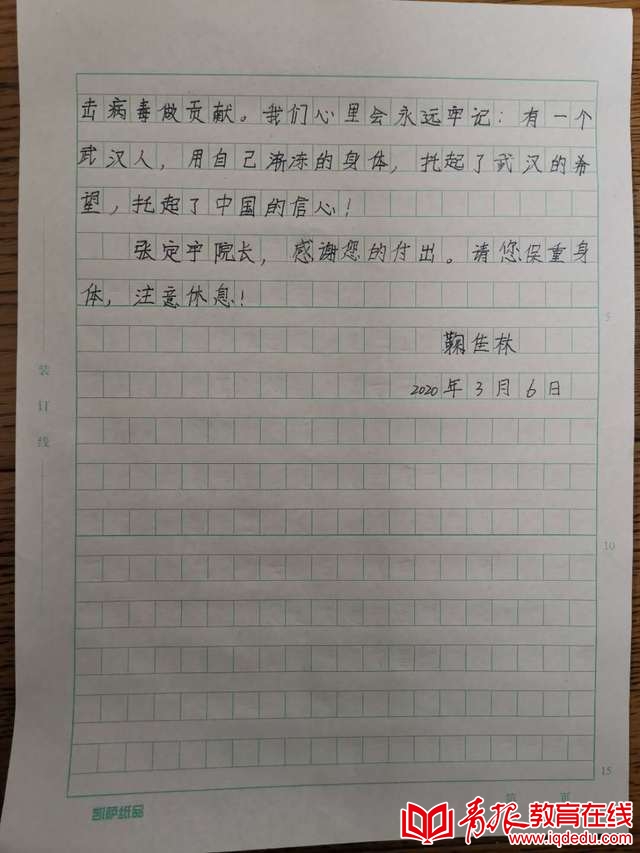 击病毒做贡献。我们心里会永远牢记：有一个
武汉人，用自己渐冻的身体，托起了武汉的希
望，托起了中国的信心！
张定宇院长，感谢您的付出。请您保重身
体，注意休息！
鞠佳林
2020年3月6日
装
订
线
5
10
15
凯萨纸品
第 页
青报教育在线
www.iqdedu.com